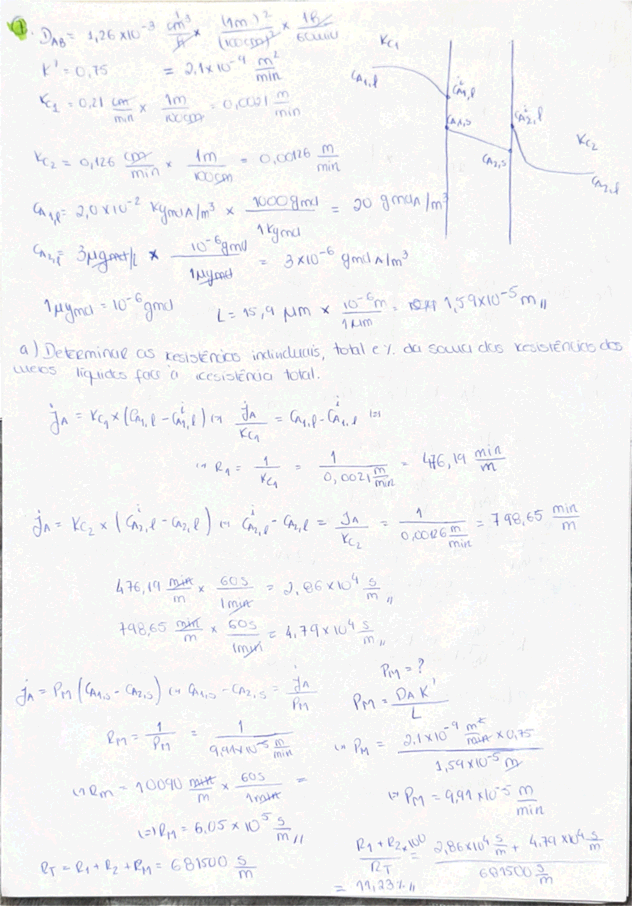 1. D_AB = 1,26 x10^-3 cm^3/h x (1m)^2/(100cm)^2 x 1h/60min
K' = 0,75 = 2,1x10^-9 m^2/min
Kc1 = 0,21 cm/min x 1m/100cm = 0,0021 m/min
Kc2 = 0,126 cm/min x 1m/100cm = 0,00126 m/min
CA1,l = 2,0x10^-2 KgmolA/m^3 x 1000gmol/1Kgmol = 20 gmolA/m^3
CA2,l = 3µgmol/L x 10^-6gmol/1µgmol = 3x10^-6 gmolA/m^3
1µgmol = 10^-6 gmol L = 15,9 µm x 10^-6m/1µm = 1,59x10^-5 m,,
Kc1
CA1,l
C^iA1,l
CA1,s
C^iA2,l
CA2,s
Kc2
CA2,l
a) Determinar as resistências individuais, total e % da soma das resistências dos
meios líquidos face à resistência total.
jA = Kc1 x (CA1,l - C^iA1,l) (=) jA/Kc1 = CA1,l - C^iA1,l (=)
(=) R1 = 1/Kc1 = 1/0,0021 m/min = 476,19 min/m
jA = Kc2 x (C^iA2,l - CA2,l) (=) C^iA2,l - CA2,l = jA/Kc2 = 1/0,00126 m/min = 798,65 min/m
476,19 min/m x 60s/1min = 2,86x10^4 s/m,,
798,65 min/m x 60s/1min = 4,79x10^4 s/m,,
jA = PM (CA1,s - CA2,s) (=) CA1,s - CA2,s = jA/PM
RM = 1/PM = 1/9,91x10^-5 m/min
(=) RM = 10090 min/m x 60s/1min =
(=) RM = 6,05 x 10^5 s/m,,
RT = R1 + R2 + RM = 681500 s/m
PM = ?
PM = DA K'/L
(=) PM = 2,1x10^-9 m^2/min x 0,75/1,59x10^-5 m
(=) PM = 9,91 x10^-5 m/min
R1 + R2 x100/RT = 2,86x10^4 s/m + 4,79x10^4 s/m/681500 s/m
= 11,23%,,